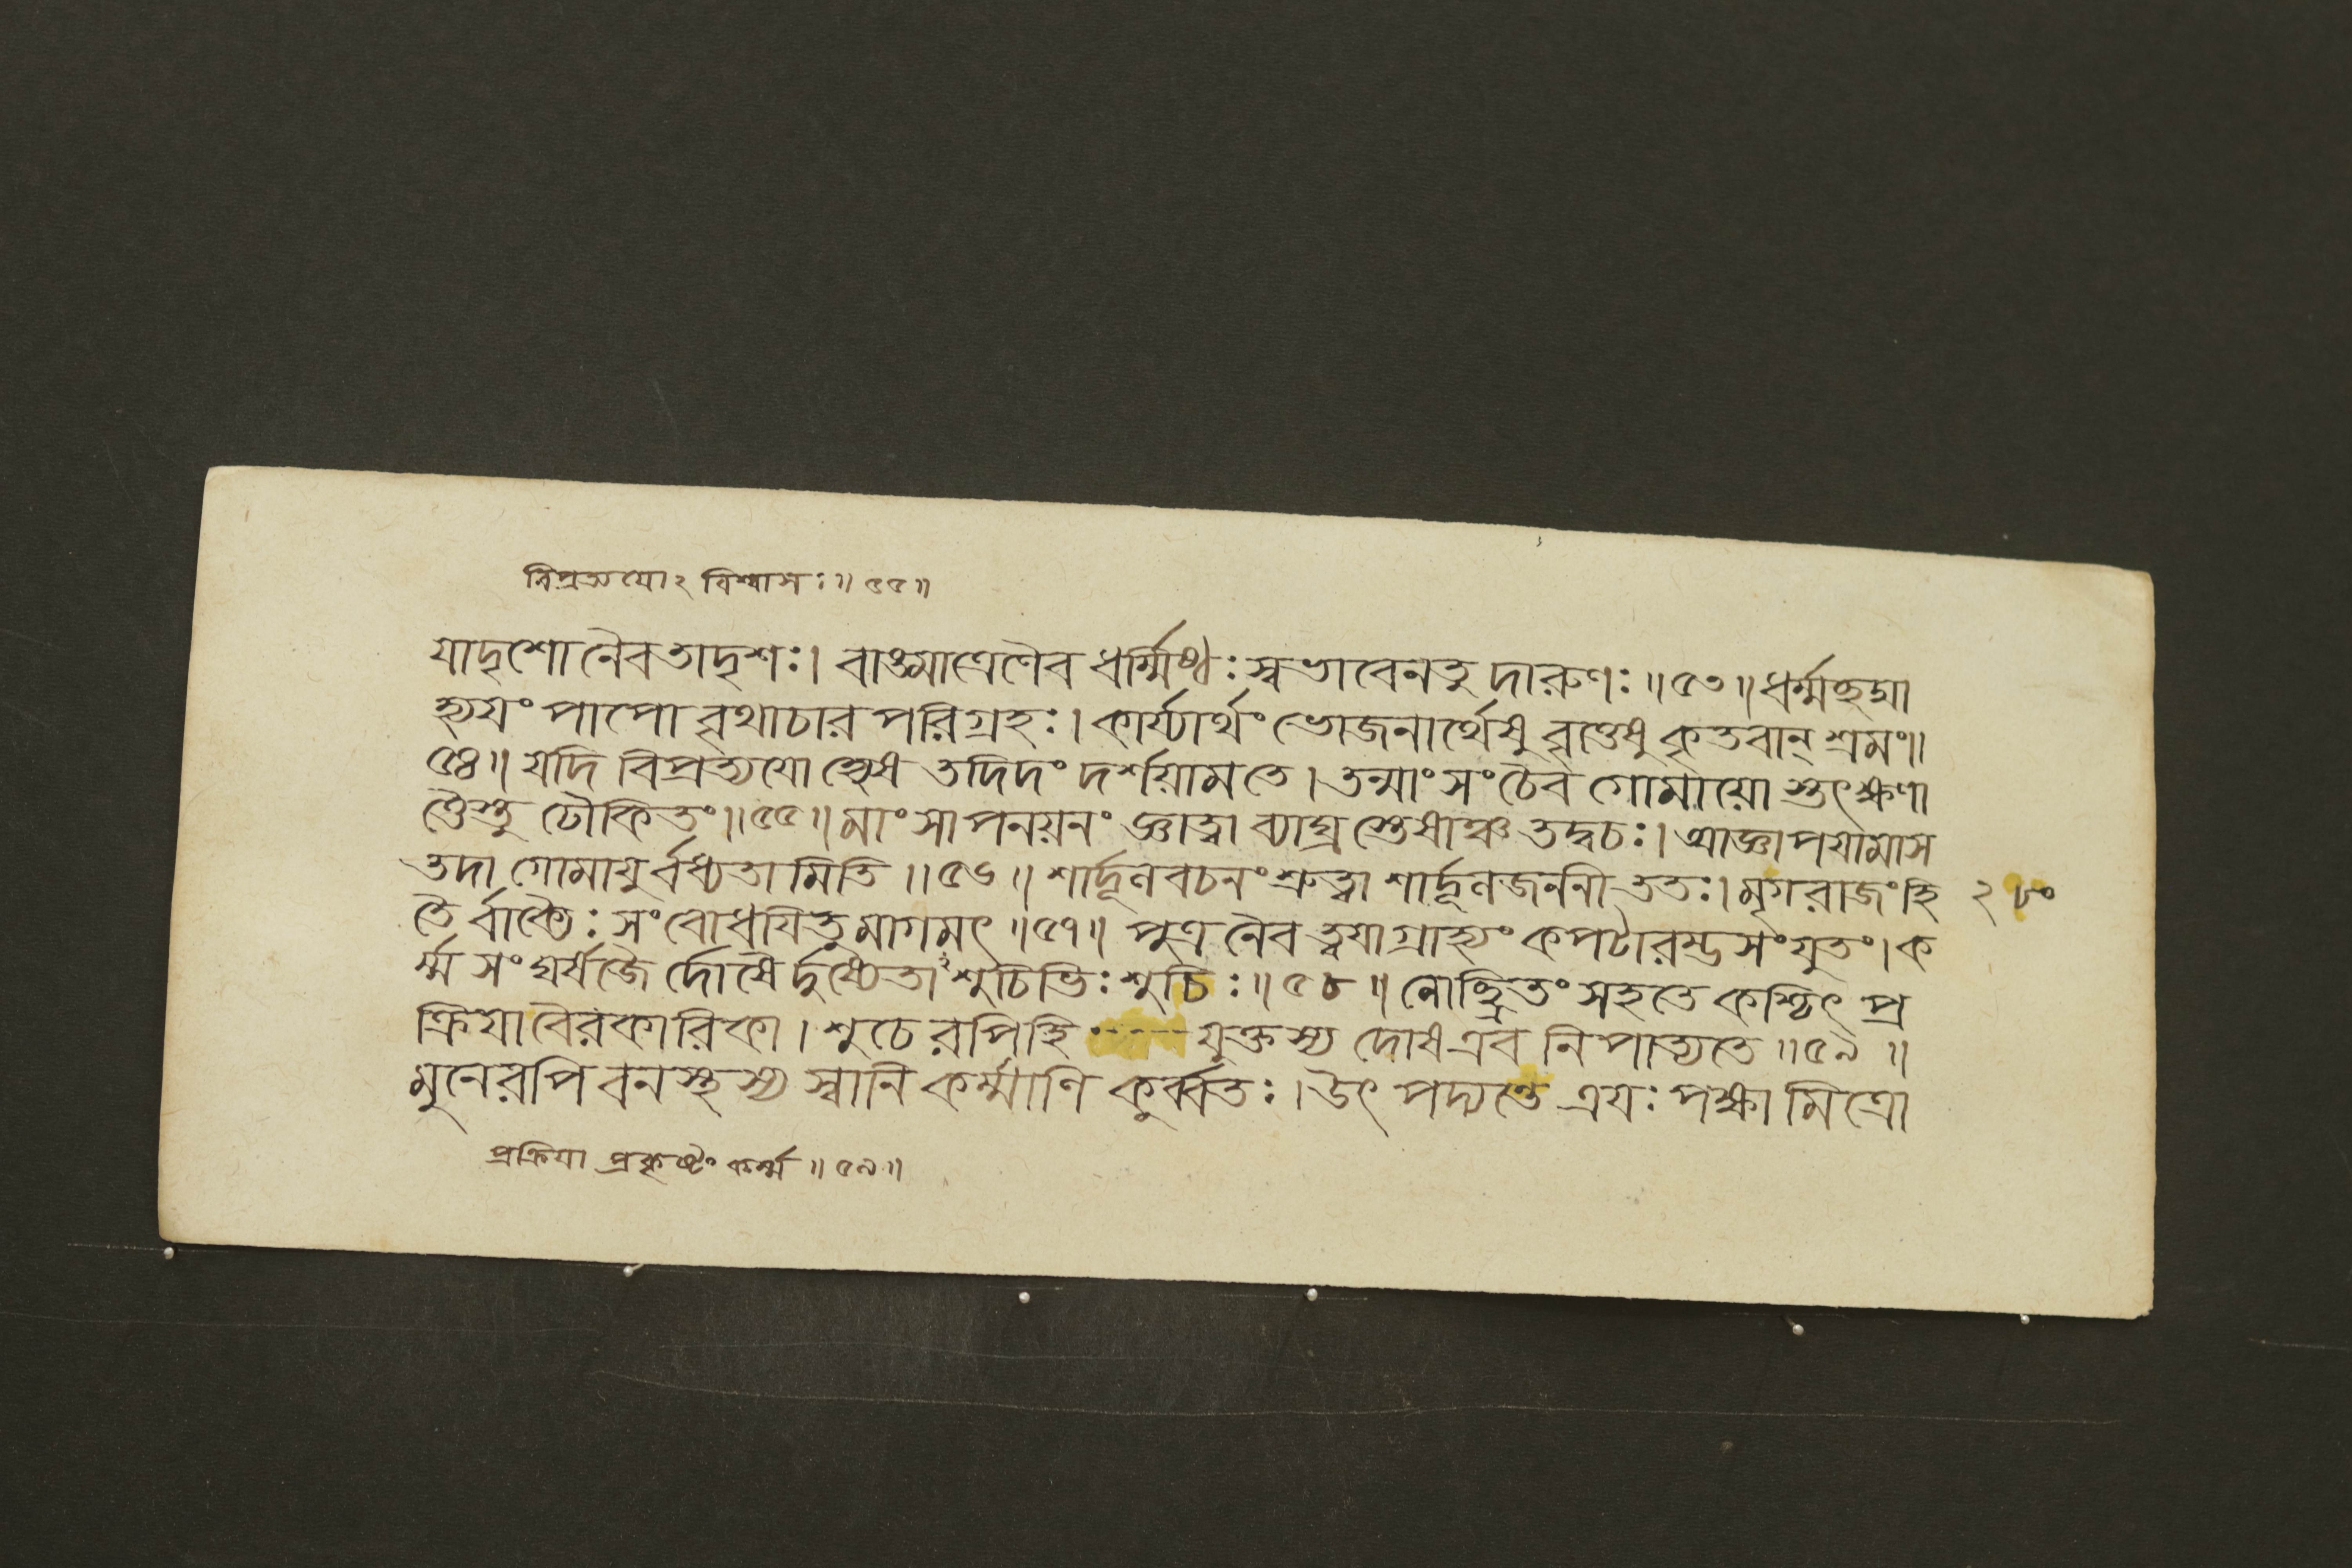 বিপ্রত্যযোঽবিশ্বাসঃ॥৫৫॥
যাদৃশো নৈব তাদৃশঃ। বাঙ্মাত্রেণৈব ধর্ম্মিষ্ঠঃ স্বভাবেন তু দারুণঃ॥৫৩॥ধর্ম্মছদ্মা
হ্যযং পাপো বৃথাচার পরিগ্রহঃ। কার্য্যার্থং ভোজনার্থেষু ব্রতেষু কৃতবান্ শ্রমং॥
৫৪॥ যদি বিপ্রত্যযো হ্যেষ তদিদং দর্শয়ামতে। তন্মাংসং চৈব গোমাযো স্তৎক্ষণা
ত্তৈস্তু ঢৌকিতং॥৫৫॥ মাংসাপনয়নং জ্ঞাত্বা ব্যাঘ্র স্তেষাঞ্চ তদ্বচঃ। আজ্ঞাপযামাস
তদা গোমাযুর্বধ্যতামিতি॥৫৬॥ শার্দ্দূলবচনং শ্রুত্বা শার্দ্দূলজননী ততঃ। মৃগরাজং হি ২৮০
তৈর্বাক্যৈঃ সংবোধযিতুমাগমৎ॥৫৭॥ পুত্র নৈব ত্বযা গ্রাহ্যং কপটারম্ভসংযুতং। ক
র্ম্ম সংঘর্ষজৈর্দোষৈর্দুষ্যেতাঽশুচিভিঃ শুচিঃ॥৫৮॥ নোচ্ছ্রিতং সহতে কশ্চিৎ প্র
ক্রিযা বৈরকারিকা। শুচেরপি হি যুক্তস্য দোষ এব নিপাত্যতে॥৫৯॥
মুনেরপি বনস্থস্য স্বানি কর্ম্মাণি কুর্ব্বতঃ। উৎপদ্যন্তে ত্রযঃ পক্ষা মিত্রো
প্রক্রিযা প্রকৃষ্টং কর্ম্ম॥৫৯॥